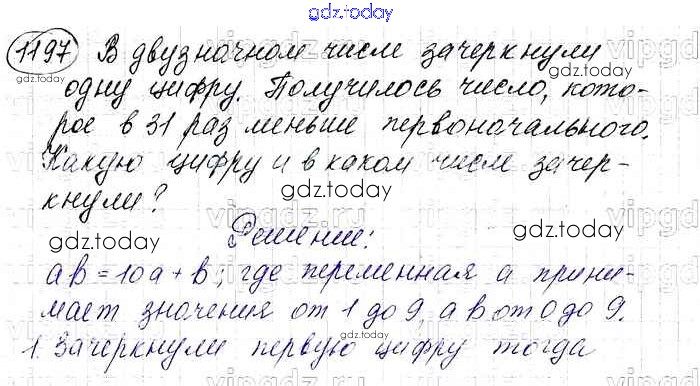 gdz.today
1197 В двузначном числе зачеркнули
gdz.today
одну цифру. Получилось число, кото-
рое в 31 раз меньше первоначального.
gdz.today
Какую цифру и в каком числе зачер-
gdz.today
кнули?
vipgdz.ru
gdz.today
Решение:
gdz.today
ab = 10a + b; где переменная a прини-
мает значения от 1 до 9, а b от 0 до 9.
gdz.today
1. Зачеркнули первую цифру тогда